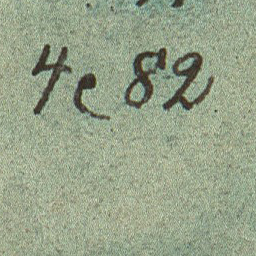 4e 82